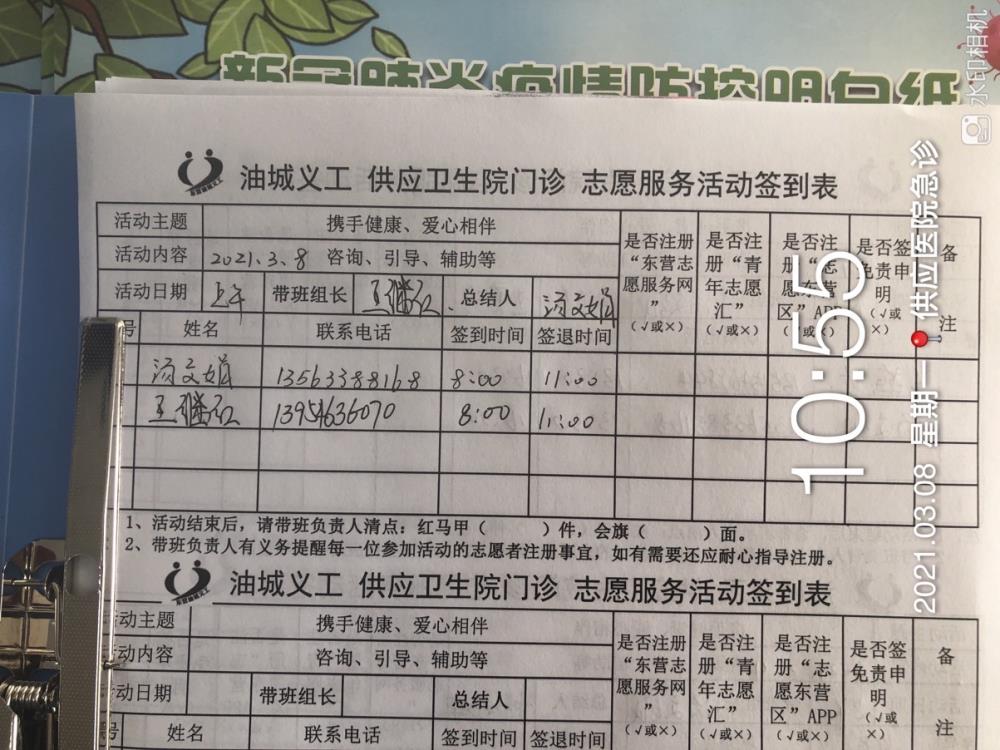 新冠肺炎疫情防控明白纸
水印相机
油城义工 供应卫生院门诊 志愿服务活动签到表
活动主题 携手健康、爱心相伴 是否注册“东营志愿服务网”(√或×) 是否注册“青年志愿汇”(√或×) 是否注册“志愿东营区”APP(√或×) 是否签免责申明(√或×) 备注
活动内容 2021.3.8 咨询、引导、辅助等
活动日期 上午 带班组长 王继石 总结人 汤文娟
号 姓名 联系电话 签到时间 签退时间
汤文娟 13563388168 8:00 11:00
王继石 13954636070 8:00 11:00
1、活动结束后，请带班负责人清点：红马甲（ ）件，会旗（ ）面。
2、带班负责人有义务提醒每一位参加活动的志愿者注册事宜，如有需要还应耐心指导注册。
油城义工 供应卫生院门诊 志愿服务活动签到表
活动主题 携手健康、爱心相伴 是否注册“东营志愿服务网”(√或×) 是否注册“青年志愿汇”(√或×) 是否注册“志愿东营区”APP(√或×) 是否签免责申明(√或×) 备注
活动内容 咨询、引导、辅助等
活动日期 带班组长 总结人
号 姓名 联系电话 签到时间 签退时间
10:55
2021.03.08 星期一 供应医院急诊